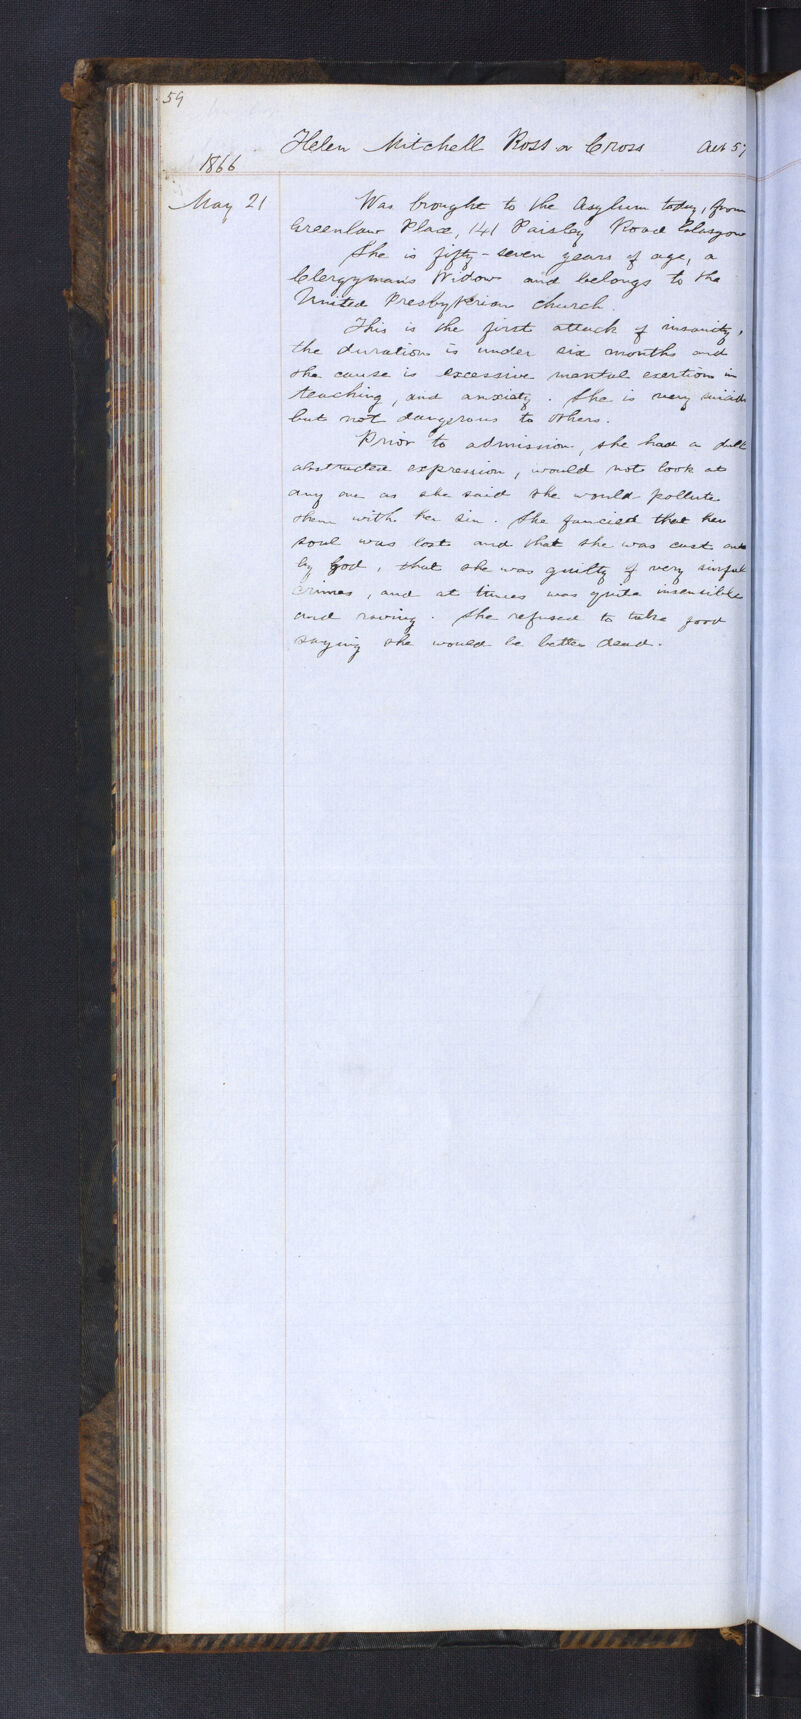 59
Helen Mitchell Ross or Cross Aet 57
1866
May 21 Was brought to the Asylum today, from
Greenlaw Place, 141 Paisley Road Glasgow
She is fifty-seven years of age, a
Clergyman's Widow and belongs to the
United Presbyterian Church.
This is the first attack of insanity,
the duration is under six months and
the cause is excessive mental exertion in
teaching, and anxiety. She is very
but not dangerous to others.
Prior to admission, she had a dull
abstracted expression, would not look at
any one as she said she would pollute
them with her sin. She fancied that her
soul was lost and that she was cast out
by God, that she was guilty of very sinful
crimes, and at times was quite insensible
and raving. She refused to take food
saying she would be better dead.